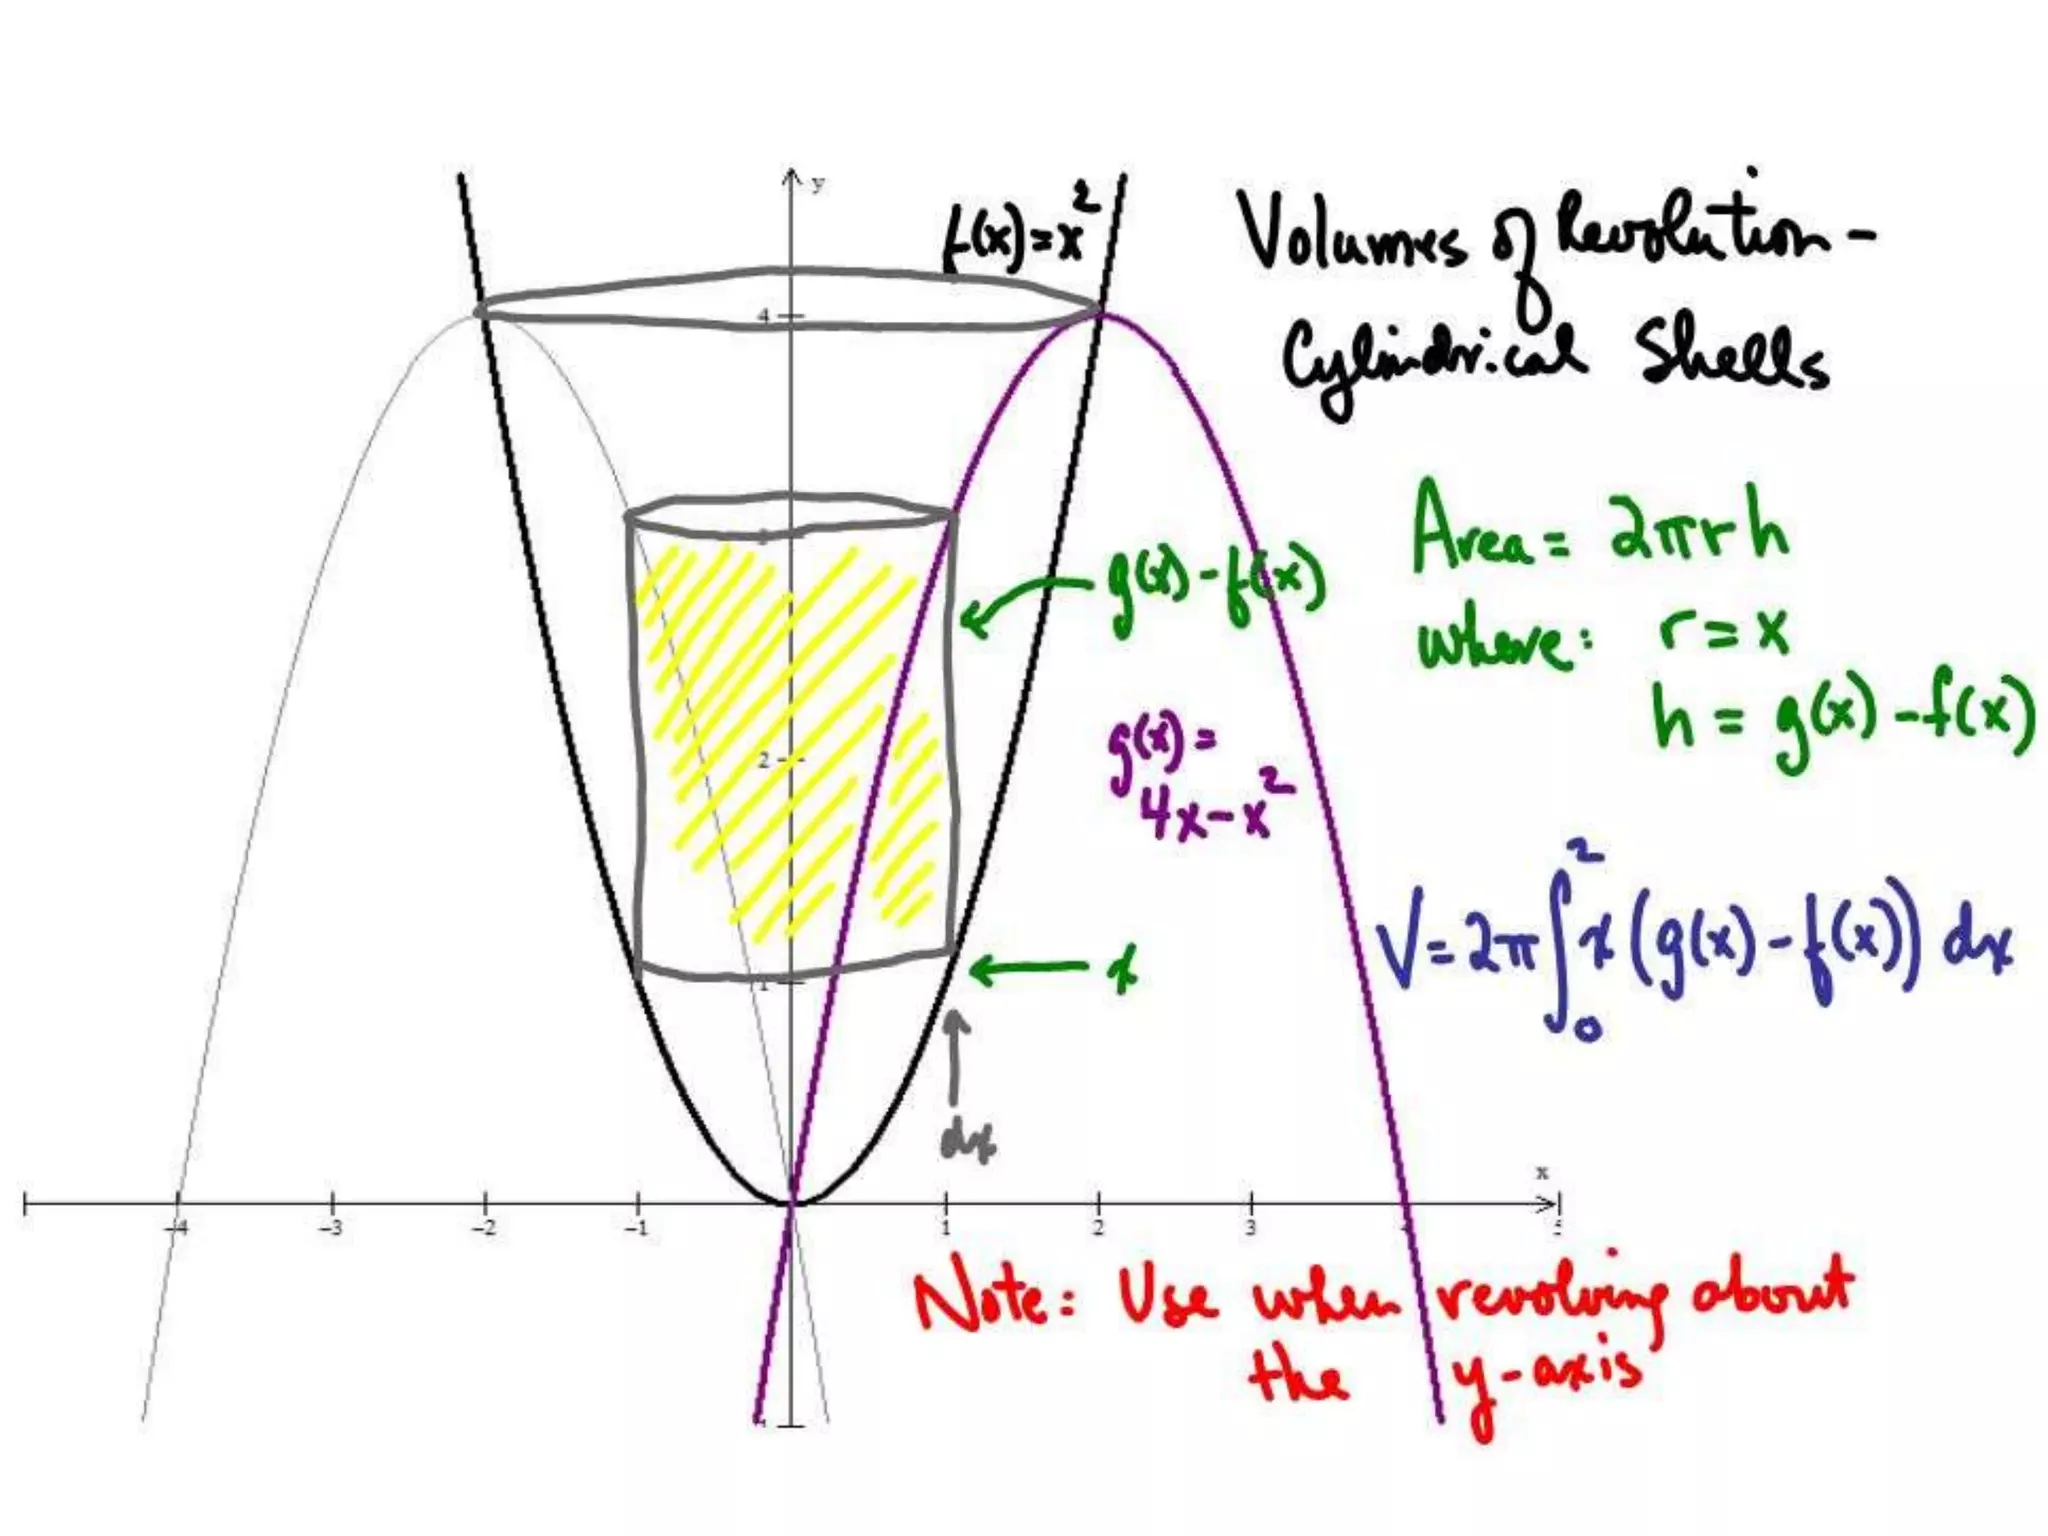 y
f(x)=x²
Volumes of Revolution -
Cylindrical Shells
4
3
Area = 2πrh
g(x)-f(x)
where: r=x
h = g(x)-f(x)
g(x)=
4x-x²
2
V=2π∫₀² x(g(x)-f(x)) dx
x
1
dx
x
-4 -3 -2 -1 1 2 3 4
Note: Use when revolving about
the y-axis